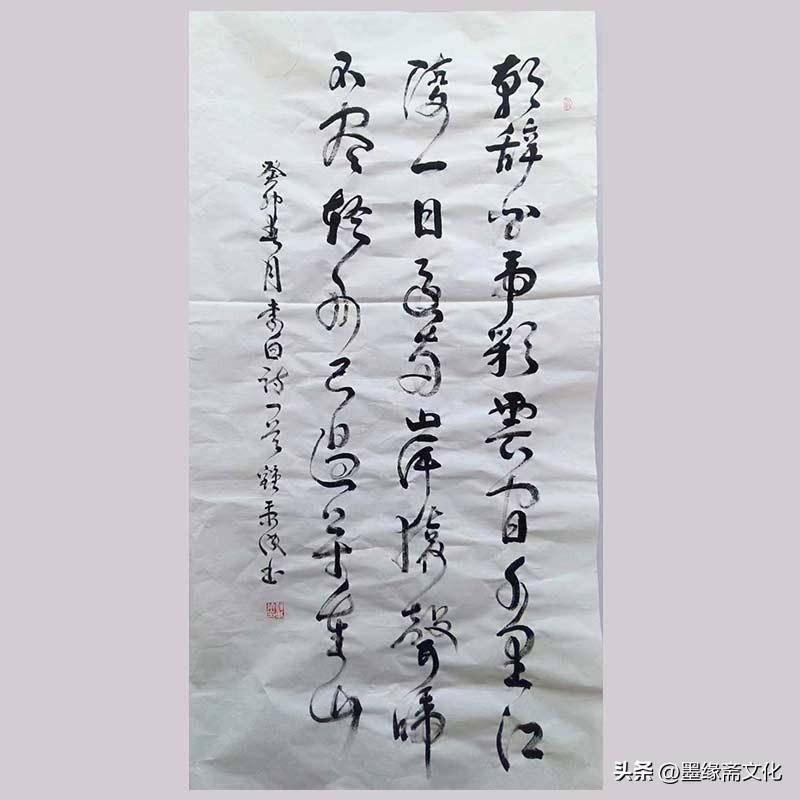 朝辞白帝彩雲间千里江
陵一日还两岸猿聲啼
不尽轻舟已过万重山
癸卯春月李白诗一首书
头条 @墨缘斋文化